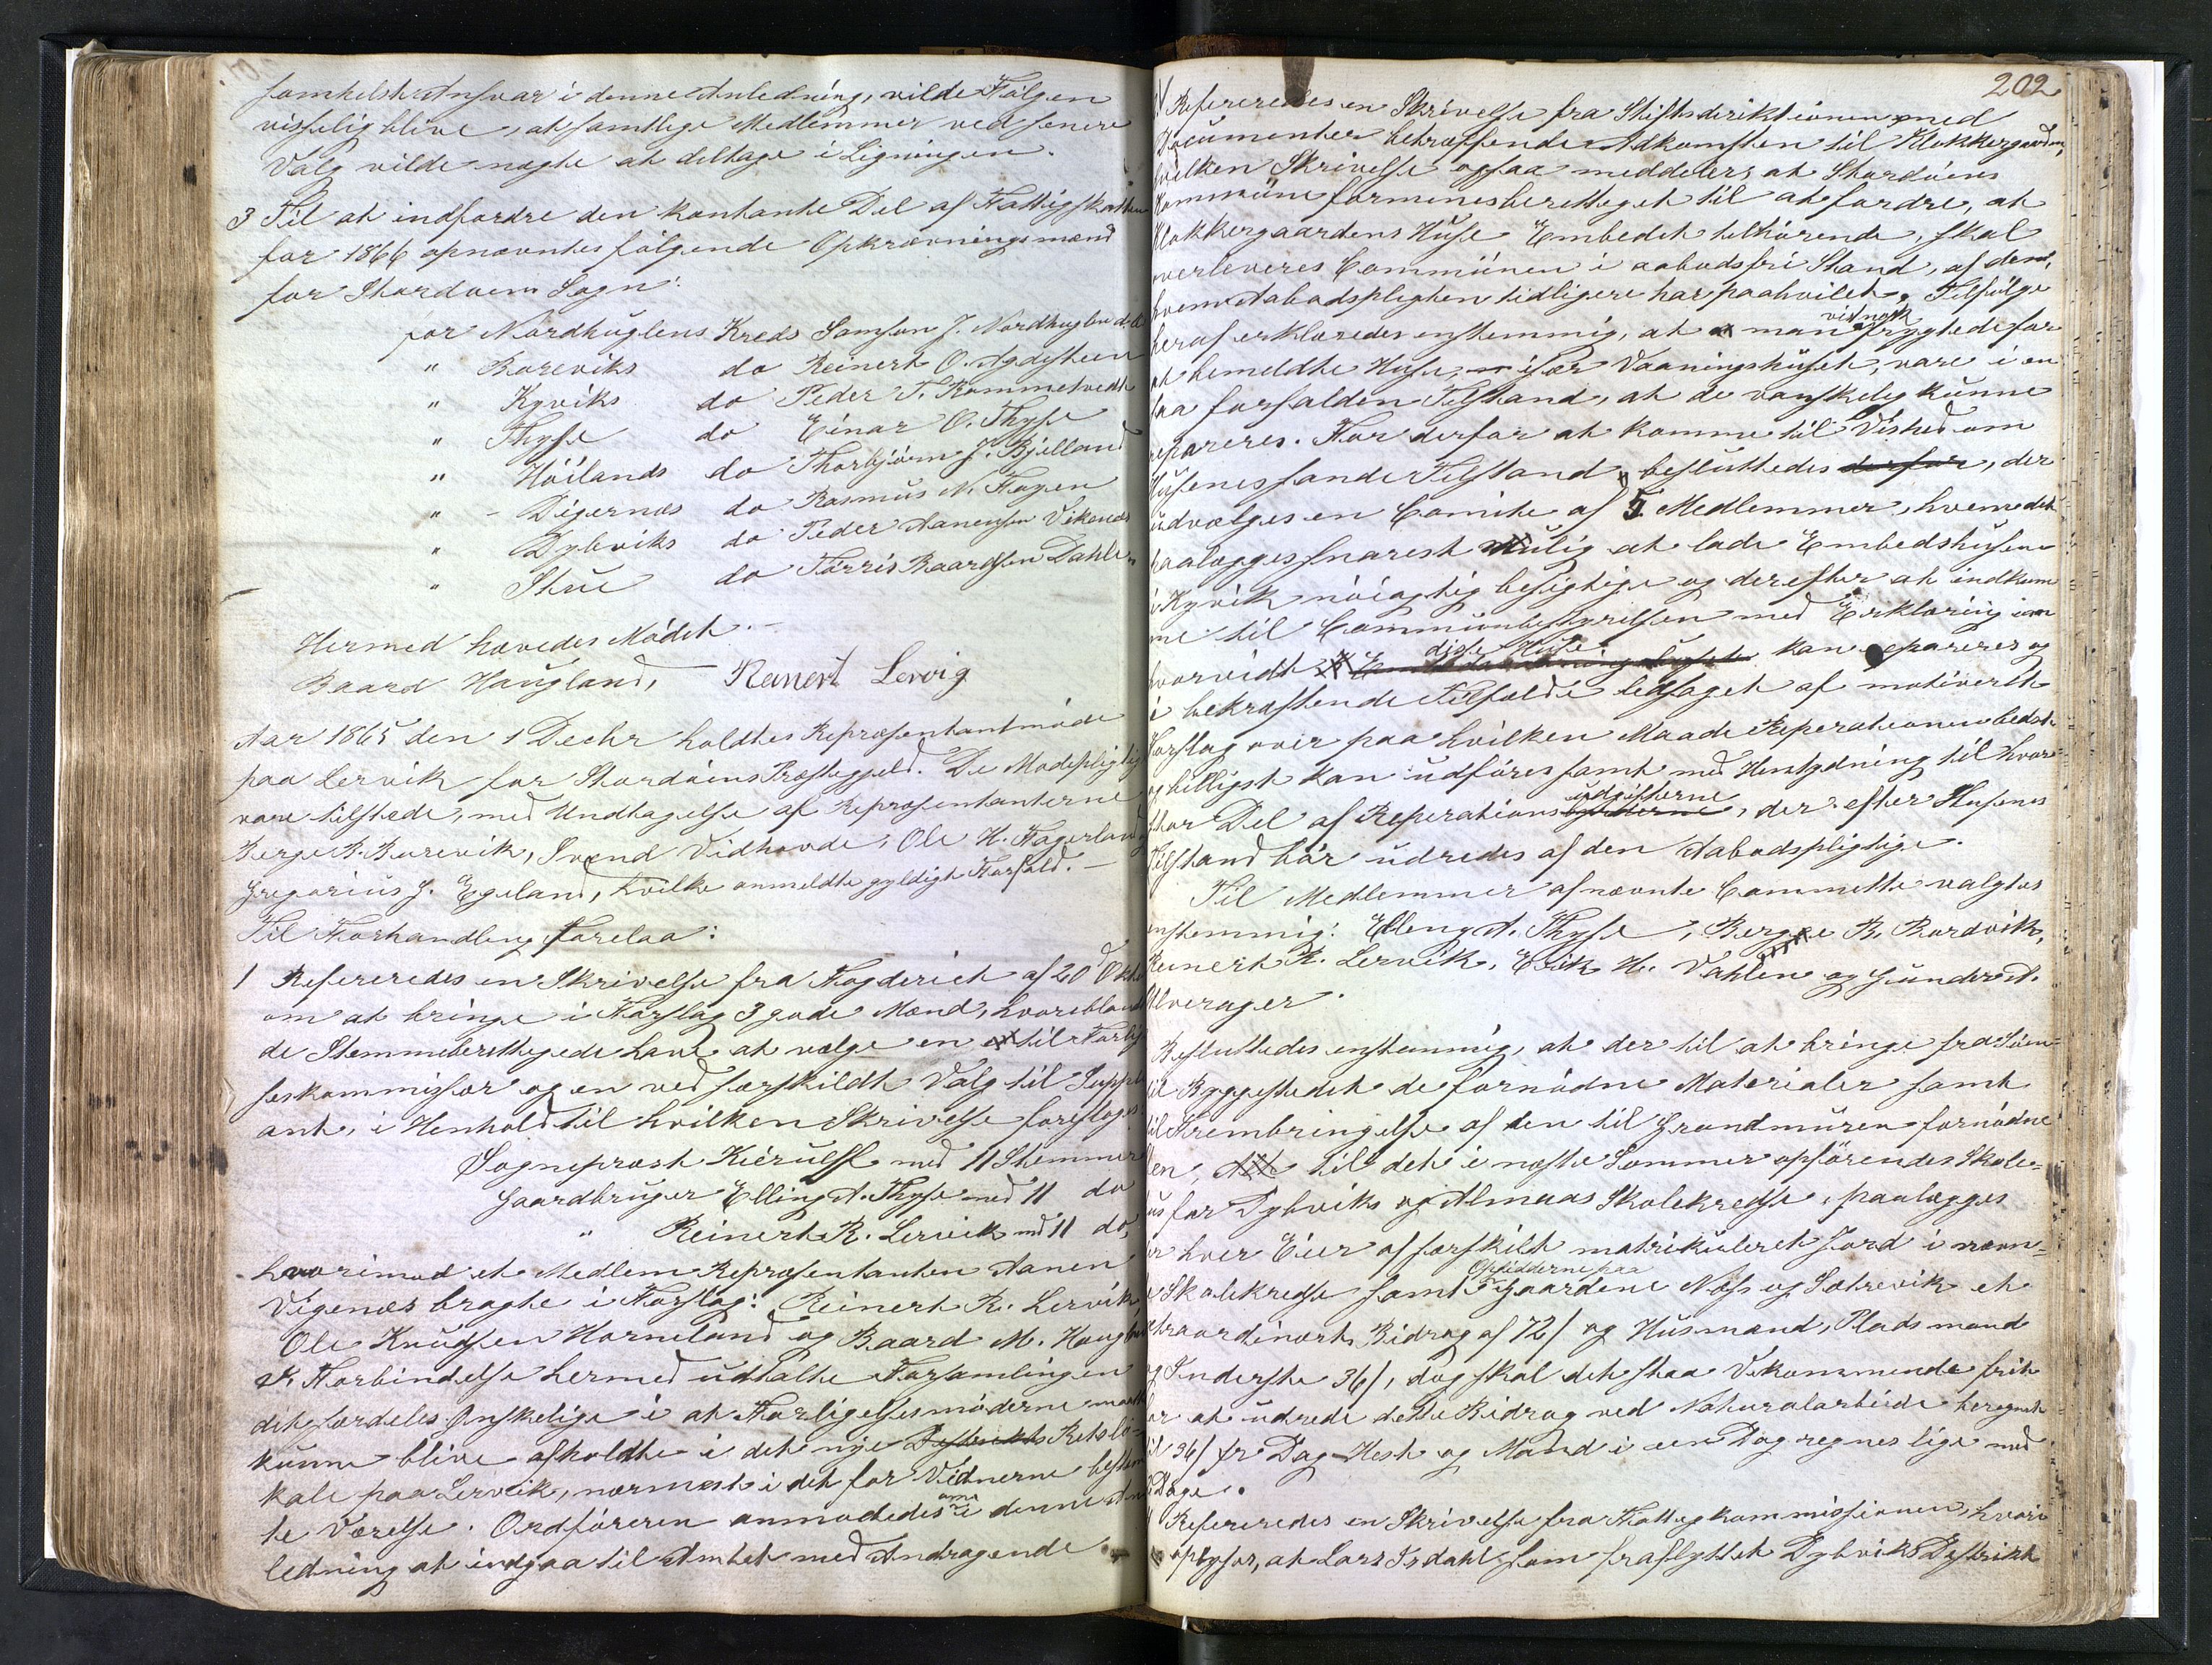 somhelst Ansvar i denne Anledning, vilde Følgen
visselig blive, at samtlige Medlemmer ved senere
Valg vilde nægte at deltage i Ligningen.
3 Til at indfordre den kontante Del af Fattigskatten
for 1866 opnævntes følgende Opkrævningsmænd
for Stordøens Sogn:
for Nordhuglens Kreds Samson J. Nordhuglen
" Boreviks do Reinert O. Agdesteen
" Kyviks do Peder T. Rommetvedt
" Thyse do Einar O. Thyse
" Høilands do Thorbjørn J. Bjelland
" - Digernæs do Rasmus N. Hagen
" Dybviks do Peder Aanensen Vikenæs
" Stue do Tørris Baardsen Dahle
Hermed hævedes Mødet. -
Baard Haugland, Reinert Lervig
Aar 1865 den 1 Decbr holdtes Repræsentantmøde
paa Lervik for Stordøens Præstegjeld. De Mødepligtig
vare tilstede, med Undtagelse af Repræsentanterne
Berge B. Borevik, Svend Vidhovde, Ole H. Fagerland
Gregorius J. Egeland, hvilke anmeldte gyldigt Forfald. -
Til Forhandling forelaa:
1 Refereredes en Skrivelse fra Fogderiet af 20d Okt
om at bringe i Forslag 3 gode Mænd, hvoriblandt
de Stemmeberettigede have at vælge en til Forlig
seskommissær og en ved særskildt Valg til Supple
ant, i Henhold til hvilken Skrivelse foresloges:
Sogneprest Kierulf med 11 Stemmer
Gaardbruger Elling A. Thyse med 11 do
" Reinert R. Lervik md 11 do,
hvorimod et Medlem Repræsentanten Aanen
Vigenæs bragte i Forslag: Reinert R. Lervik,
Ole Knudsen Horneland og Baard M. Haugland
I Forbindelse hermed udtalte Forsamlingen
det særdeles Ønskelige i at Forligelsesmøderne maatte
kunne blive afholdte i det nye Distrikts Retslo-
kale paa Lervik, nærmest i det for Vidnerne bestem
te Værelse. Ordføreren anmodedes om i denne An
ledning at indgaa til Amtet med Andragende.
202
Refereredes en Skrivelse fra Stiftsdirektionen med
Documenter betræffende Adkomsten til Klokkergaarden,
hvilken Skrivelse ogsaa meddeler, at Stordøens
Kommune formenes berettiget til at fordre, at
Klokkergaardens Huse Embedet tilhørende, skal
overleveres Communen i aabodsfri Stand, af den,
hvem Aabodspligten tidligere har paahvilet. Tilfølge
heraf erklæredes enstemmig, at man frygtede for
at bemeldte Huse, især Vaaningshuset, vare i en
saa forfalden Tilstand, at de vanskelig kunne
repareres. For derfor at komme til Vished om
Husenes sande Tilstand, besluttedes derfor, der
udvælges en Comite af 5 Medlemmer, hvem det
paalægges snarest mulig at lade Embedshusene
i Kyvik nøiagtig besigtige og derefter at indkom
me til Communbestyrelsen med Erklæring om
hvorvidt disse Huse kan repareres og
i bekræftende Tilfælde ledsaget af motiveret
Forslag over paa hvilken Maade Reperationen bedst
og billigst kan udføres samt med Hentydning til hvor-
stor Del af Reperationsudgifterne, der efter Husenes
Tilstand bør udredes af den Aabodspligtige.
Til Medlemmer af nævnte Committe valgtes
enstemmig: Elling A. Thyse, Berge B. Bordvik,
Reinert R. Lervik, Erik H. Vahlen og Gunder A.
Alverager.
Besluttedes enstemmig, at der til at bringe fra Søen
til Byggestedet de fornødne Materialer samt
til Frembringelse af den til Grundmuren fornødne
en, til det i næste Sommer opførendes Skole=
us for Dybviks og Almaas Skolekredse, paalægges
hver Eier af særskilt matrikuleret Jord i nævn=
e Skolekredse samt Opsidderne paa Gaardene Næs og Sætrevik et
extraordinært Bidrag af 72/ og Husmænd, Pladsmænd
og Inderste 36/, dog skal det staa Vekommende frit
for at udrede dette Bidrag ved Naturalarbeide beregnet
til 36/ pr Dag - Hest og Mand i een Dag regnes lige med
2 Dage.
Refereredes en Skrivelse fra Fattigkommissionen, hvori
oplyses, at Lars Isdahl som fraflyttet Dybviks Distrikt